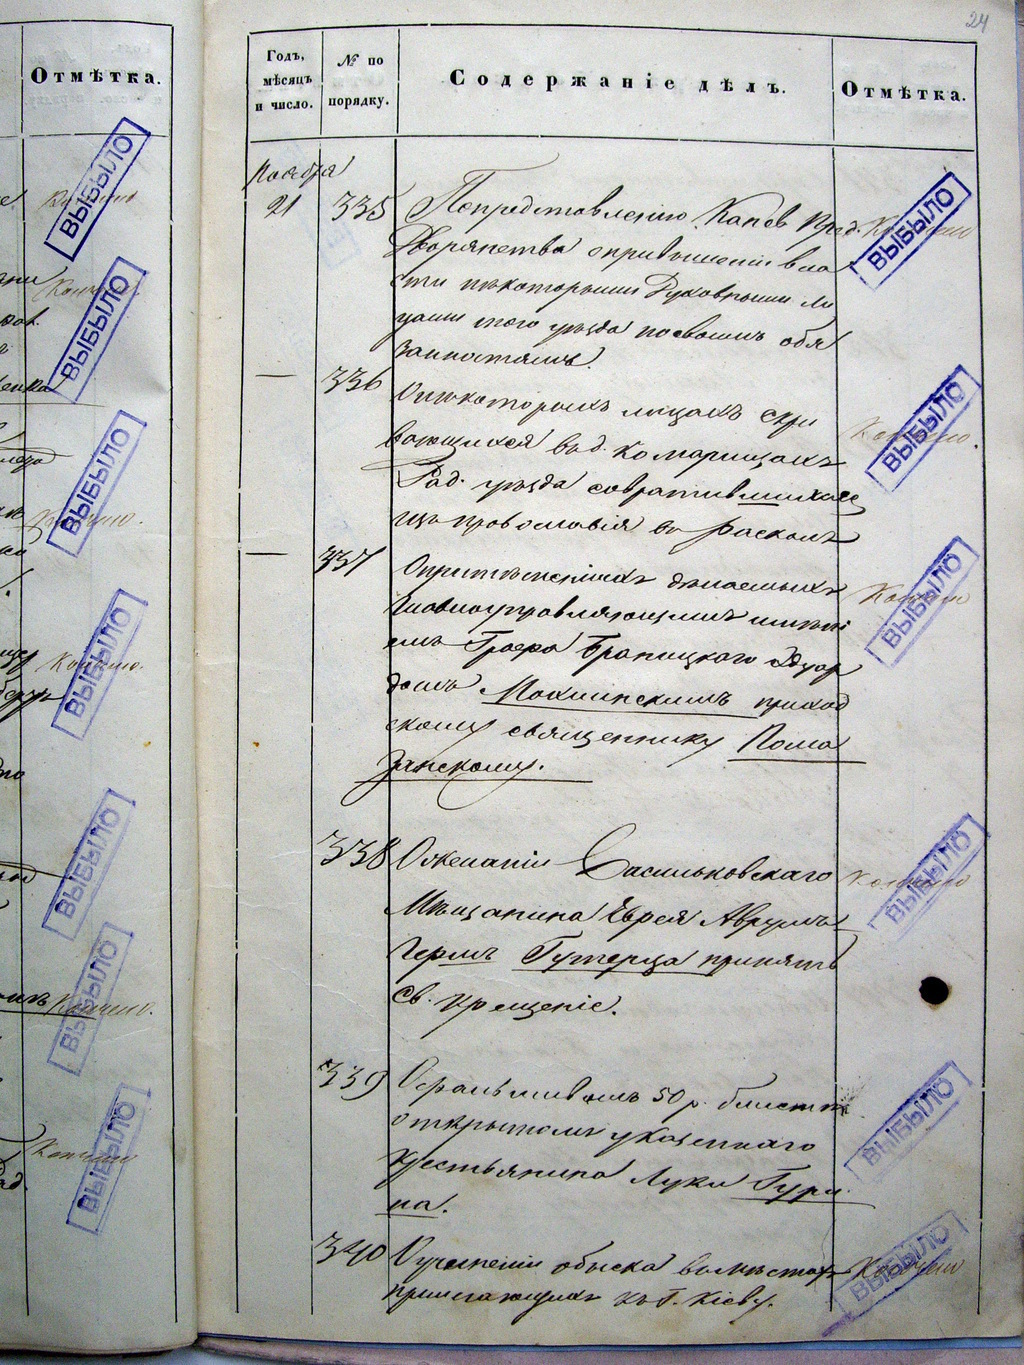 24
Отмѣтка.
Годъ, мѣсяцъ и число.
№ по порядку.
Содержаніе дѣлъ.
Отмѣтка.
Ноября
21
335
По представленію Канев. Пред.
Дворянства о превышеніи вла
сти нѣкоторыми Духовными ли
цами того уѣзда по своимъ обя
занностямъ.
Кончено
ВЫБЫЛО
336
О нѣкоторыхъ лицахъ скры
вающихся в д. Комарицахъ
Рад. уѣзда совратившихся
изъ православія въ расколъ
Кончено.
ВЫБЫЛО
337
О притѣсненіяхъ дѣлаемыхъ
Главноуправляющимъ имѣні
емъ Графа Браницкаго Эдуар
домъ приход
скому священнику Пома
занскому.
Кончено
ВЫБЫЛО
338
О желаніи Васильковскаго
Мѣщанина Еврея Аврумъ
Герша принять
Св. крещеніе.
Кончено
ВЫБЫЛО
339
О фальшивомъ 50 р. билетѣ
открытомъ у казеннаго
крестьянина Луки Гури
на.
ВЫБЫЛО
340
О учиненіи обыска въ мѣстахъ
прилегающихъ къ г. Кіеву.
Кончено
ВЫБЫЛО